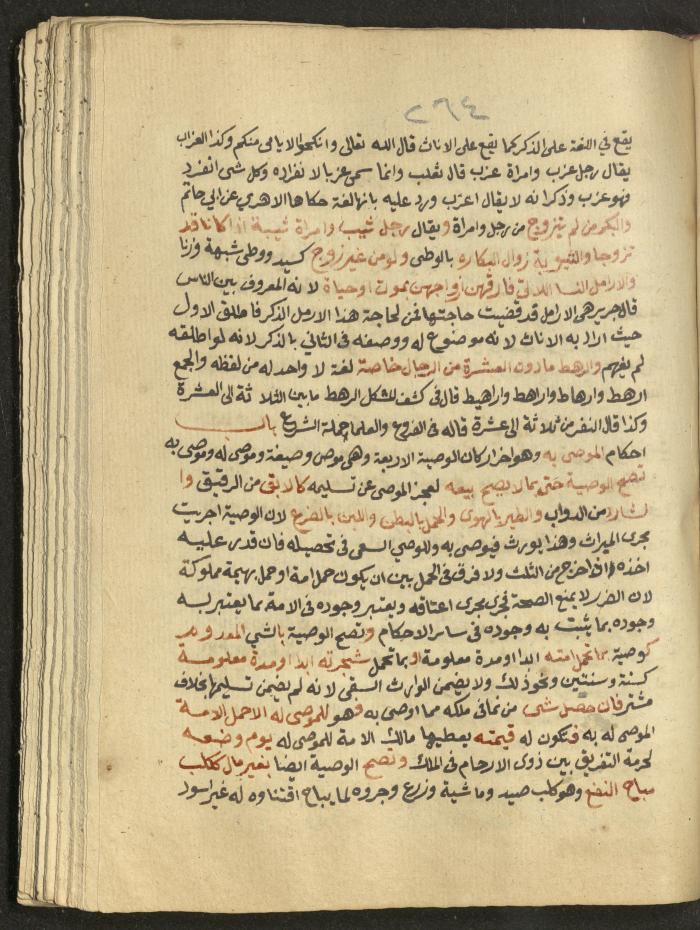 ٢٦٤
يقع في اللغة على الذكر كما يقع على الاناث قال الله تعالى وانكحوا الايامى منكم وكذا العزاب
يقال رجل عزب وامراة عزب قال ثعلب وانما سمى عزبا لانفراده وكل شى انفرد
فهو عزب وذكر انه لا يقال اعزب ورد عليه بانها لغة حكاها الازهري عن ابي حاتم
والبكر من لم يتزوج من رجل وامراة ويقال رجل ثيب وامراة ثيبة اذا كانا قد
تزوجا والثيوبة زوال البكاره بالوطى ولو من غير زوج كسيد ووطى شبهة وزنا
والارامل النسا اللاتي فارقهن ازواجهن بموت او حياة لانه المعروف بين الناس
قال جرير هى الارامل قد قضيت حاجتها فمن لحاجة هذا الارمل الذكر فاطلق الاول
حيث اراد به الاناث لانه موضوع له ووصفه فى الثاني بالذكر لانه لو اطلقه
لم يفهم والرهط ما دون العشرة من الرجال خاصة لغة لا واحد له من لفظه والجمع
ارهط وارهاط واراهط واراهيط قال فى كشف المشكل الرهط ما بين الثلاثة الى العشرة
وكذا قال النفر من ثلاثة الى عشرة قاله فى الفروع والعلما جملة الشرع باب
احكام الموصى به وهو اخر اركان الوصية الاربعة وهى موص وصيغة وموصى له وموصى به
تصح الوصية حتى بما لا يصح بيعه لعجز الموصى عن تسليمه كالابق من الرقيق وا
لشارد من الدواب والطير بالهوى والحمل بالبطن واللبن بالضرع لان الوصية اجريت
مجرى الميراث وهذا يورث فيوصى به وللوصي السعى فى تحصيله فان قدر عليه
اخذه اذا خرج من الثلث ولا فرق فى الحمل بين ان يكون حمل امة او حمل بهيمة مملوكة
لان الغرر لا يمنع الصحة فجرى مجرى اعتاقه ويعتبر وجوده فى الامة بما يعتبر له
وجوده بما يثبت به وجوده فى سائر الاحكام وتصح الوصية بالشي المعدوم
كوصية بما تحمل امته ابدا او مدة معلومة او بما تحمل شجرته ابدا او مدة معلومة
كسنة وسنتين ونحو ذلك ولا يضمن الوارث السقى لانه لم يضمن تسليمها بخلاف
مشتر فان حصل شى من نمائى ملكه مما اوصى به فهو للموصى له الا حمل الامة
الموصى له به فتكون له قيمته يعطيها مالك الامة للموصى له يوم وضعه
لحرمة التفريق بين ذوى الارحام فى الملك وتصح الوصية ايضا بغير مال ككلب
مباح النفع وهو كلب صيد وماشية وزرع وجروه لما يباح اقتناوه له غير اسود